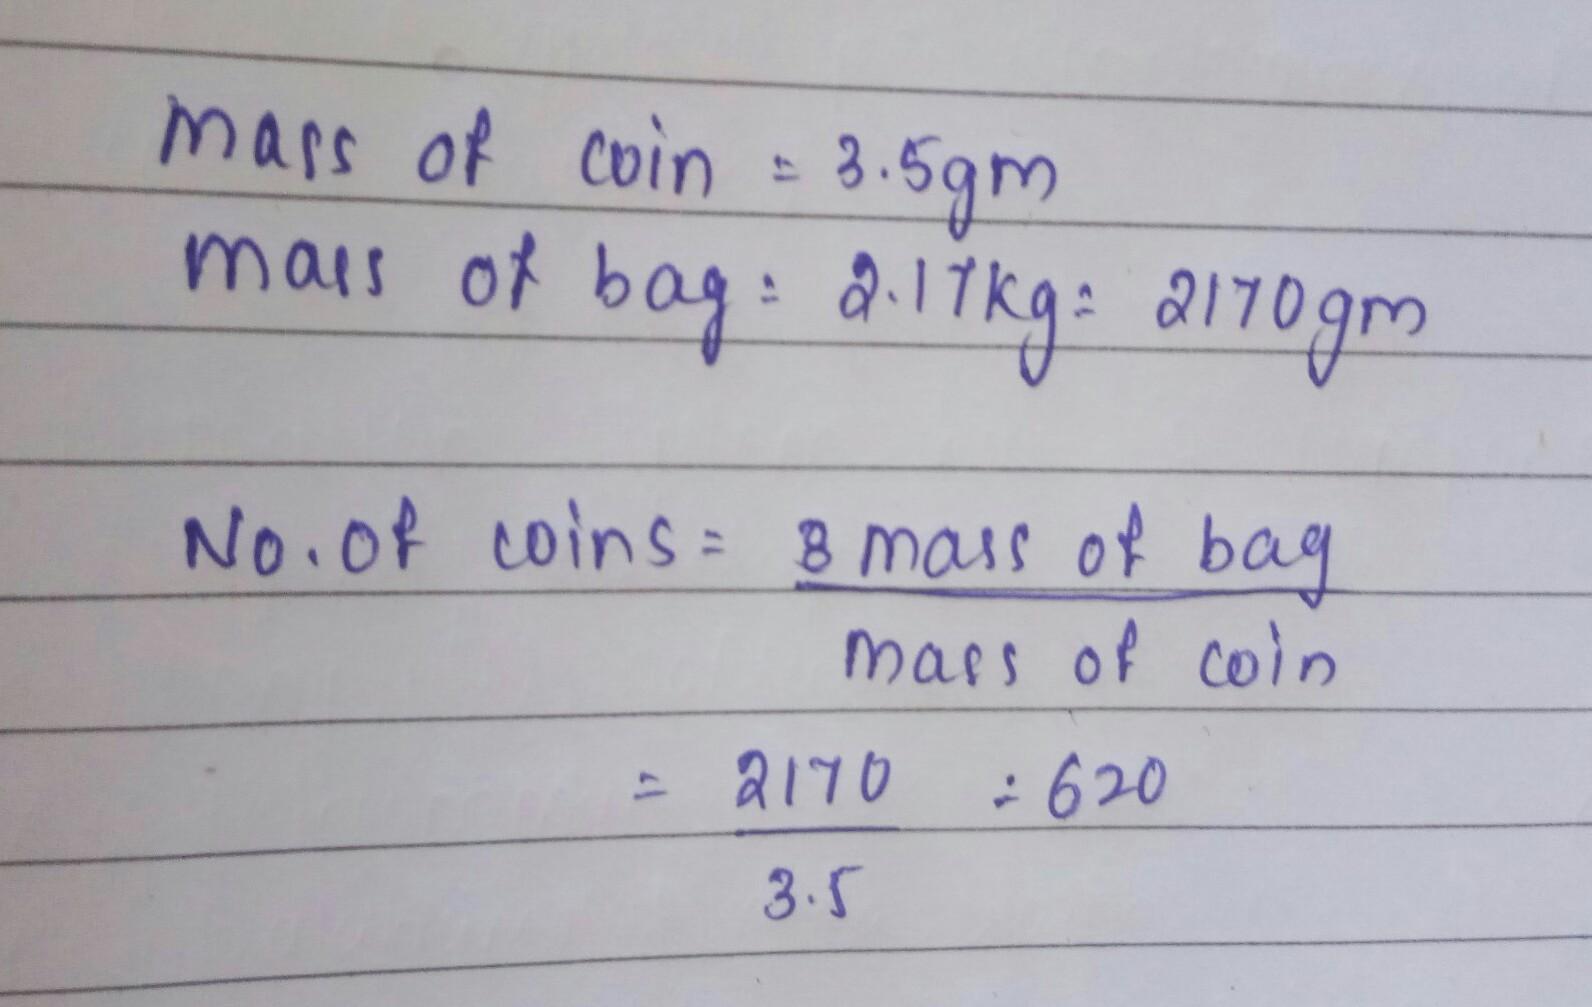 mass of coin = 3.5gm
mass of bag = 2.17kg = 2170gm
No. of coins = mass of bag
mass of coin
= 2170 = 620
3.5